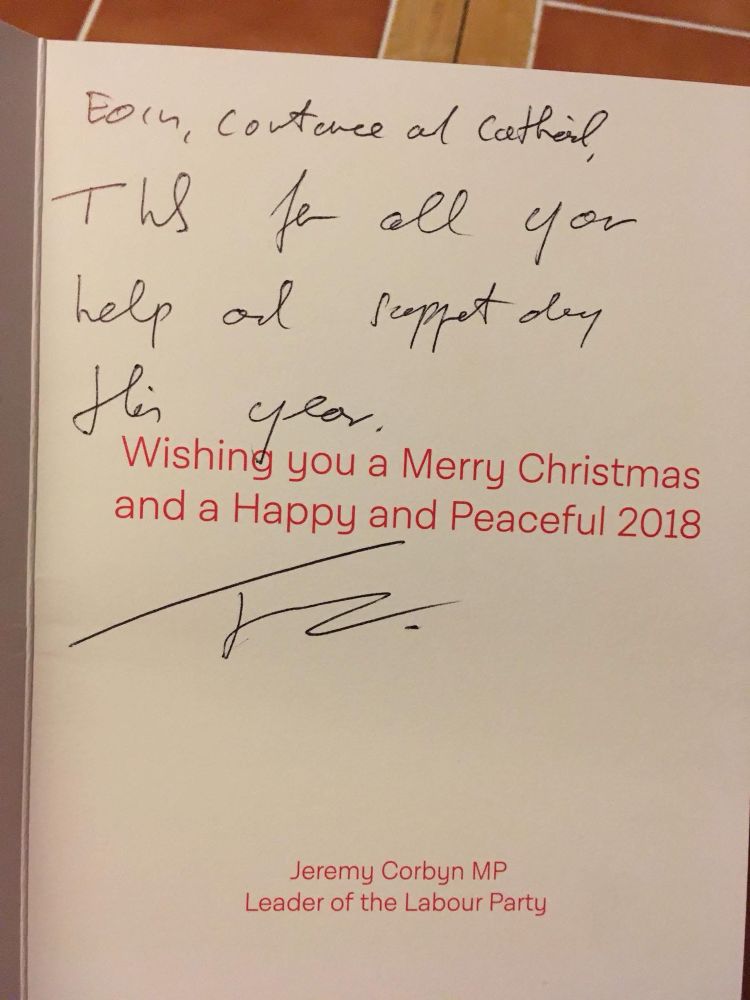 Eoin, Constance and Cathal,
Thks for all your
help and support during
this year.
Wishing you a Merry Christmas
and a Happy and Peaceful 2018
Jeremy Corbyn MP
Leader of the Labour Party